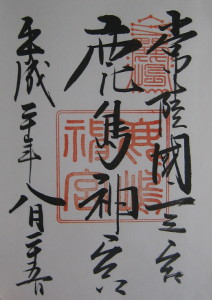 常陸國一之宮
鹿島神宮
平成二十年八月二十五日
鹿嶋
神宮